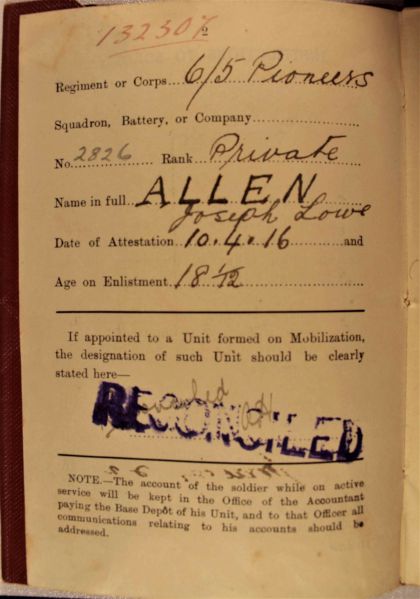 132307
2
Regiment or Corps 6/5 Pioneers
Squadron, Battery, or Company
No. 2826 Rank Private
Name in full ALLEN
Joseph Lowe
Date of Attestation 10.4.16 and
Age on Enlistment 18 1/12
If appointed to a Unit formed on Mobilization,
the designation of such Unit should be clearly
stated here—
RECONCILED
NOTE.—The account of the soldier while on active
service will be kept in the Office of the Accountant
paying the Base Depôt of his Unit, and to that Officer all
communications relating to his accounts should be
addressed.